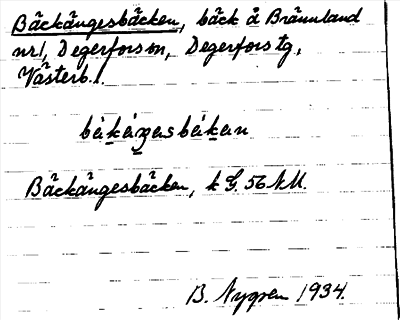 Bäckängesbäcken, bäck å Brännland
nr 1, Degerfors sn, Degerfors tg,
Västerb.l.
Bäckängesbäcken, k G. 56 NM.
B. Nygren 1934.